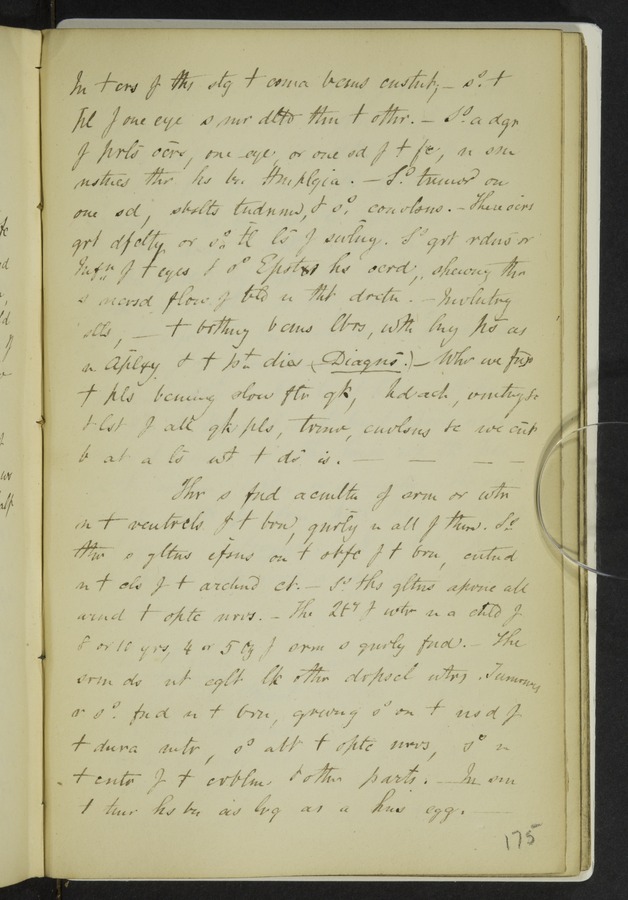 In t crs of ths stg t coma bcms custnt, – so. t
pl f one eye s mr dltd thn t othr. – So. a dgr
f prls ocrs, one eye, or one sd f t fc, n sm
nstncs thr hs bn Hmplgia. – So. tremor on
one sd, sbslts tndnm, & so. convlsns. – There ocrs
grt dfclty or so. tl ls f swlng. So. grt rdns or
f t eyes & so Epstxs hs ocrd, shewng thr
s ncrsd flow f bld n tht drctn. – Involntry
– t brthng bcms lbrs, wth lng ps as
n Aplxy & t ptn dies (Diagns.) – Whr we fnd
t pls bcmng slow ftr qk, hdach, vmtng &c
& lst f all qk pls, trmr, cnvlsns &c we cnt
b at a ls wt t ds is. — — — —
Thr s fnd acmltn of srm or wtr
n t ventrcls f t brn, gnrly n all f thm. So.
thr s gltns efsns on t srfc f t brn, cntnd
n t cls f t archnd ct. – So ths gltns aprnc all
arnd t optc nrvs. – The f wtr n a chld f
8 or 10 yrs, 4 or 5 oz f srm s gnrly fnd. – The
srm ds nt cglt lk othr drpscl wtrs. Tumours
r so. fnd n t brn, grwng so on t nsd f
t dura mtr, so abt t optc nrvs, so n
t cntr f t crblm & othr parts. — In sm
t tmr hs bn as lrg as a hns egg. —
175